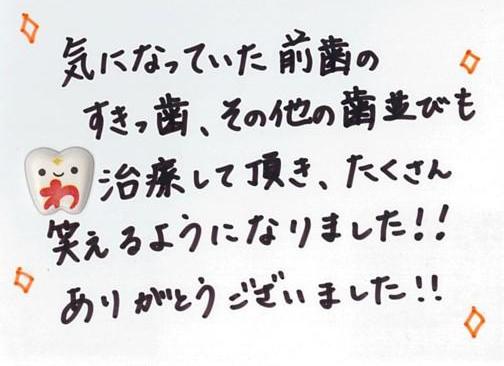 気になっていた前歯の
すきっ歯、その他の歯並びも
わ
治療して頂き、たくさん
笑えるようになりました!!
ありがとうございました!!